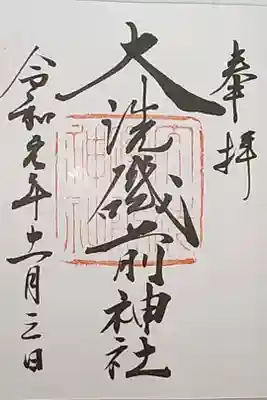 奉拝
大洗磯前神社
令和元年十一月三日